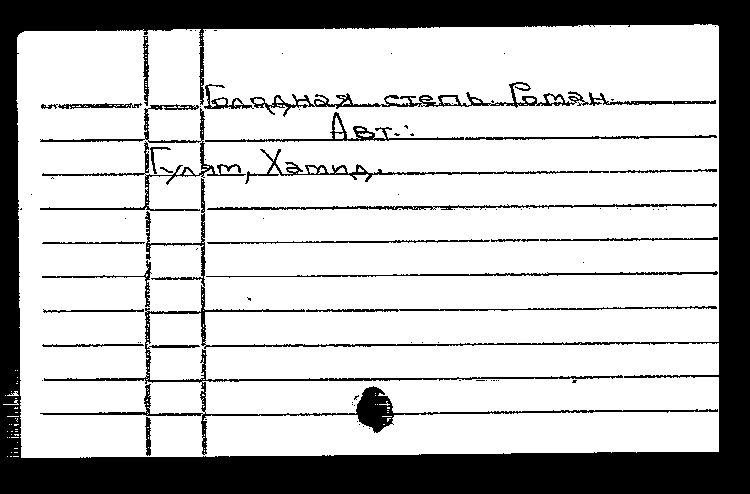 Голодная степь. Роман.
Авт.:
Гулям, Хамид.